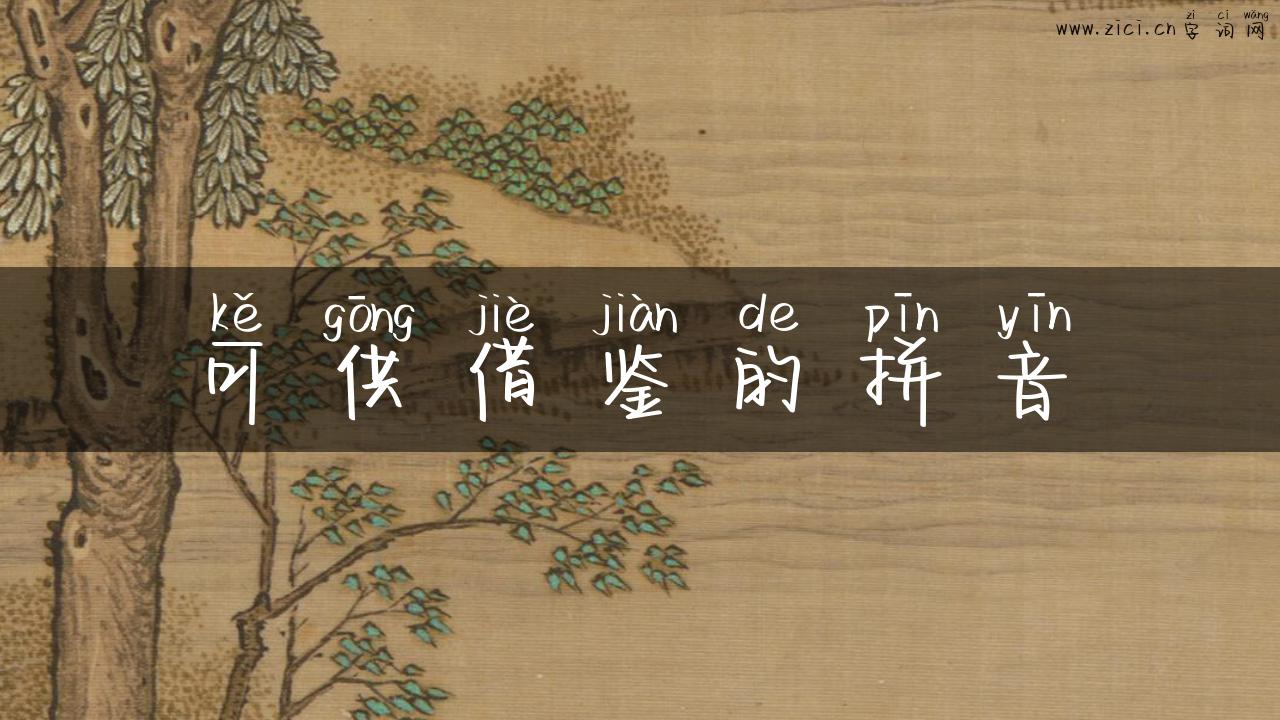 zì cí wǎng
www.zici.cn 字词网
kě gōng jiè jiàn de pīn yīn
可供借鉴的拼音